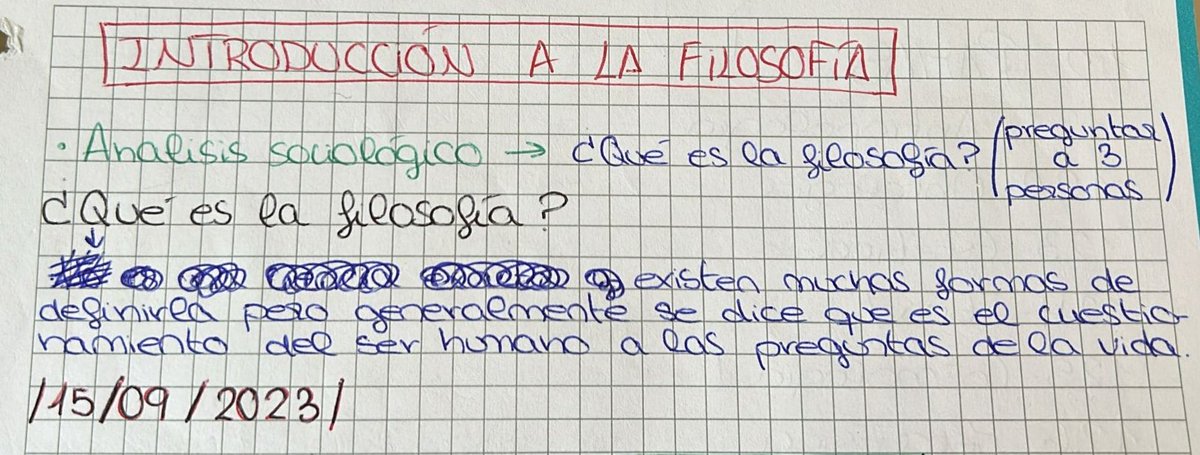 INTRODUCCIÓN A LA FILOSOFÍA
· Analisis sociológico → ¿Qué es la filosofía? (preguntar a 3 personas)
¿Qué es la filosofía?
↓
existen muchas formas de
definirla pero generalmente se dice que es el cuestio-
namiento del ser humano a las preguntas de la vida.
/15/09/2023/